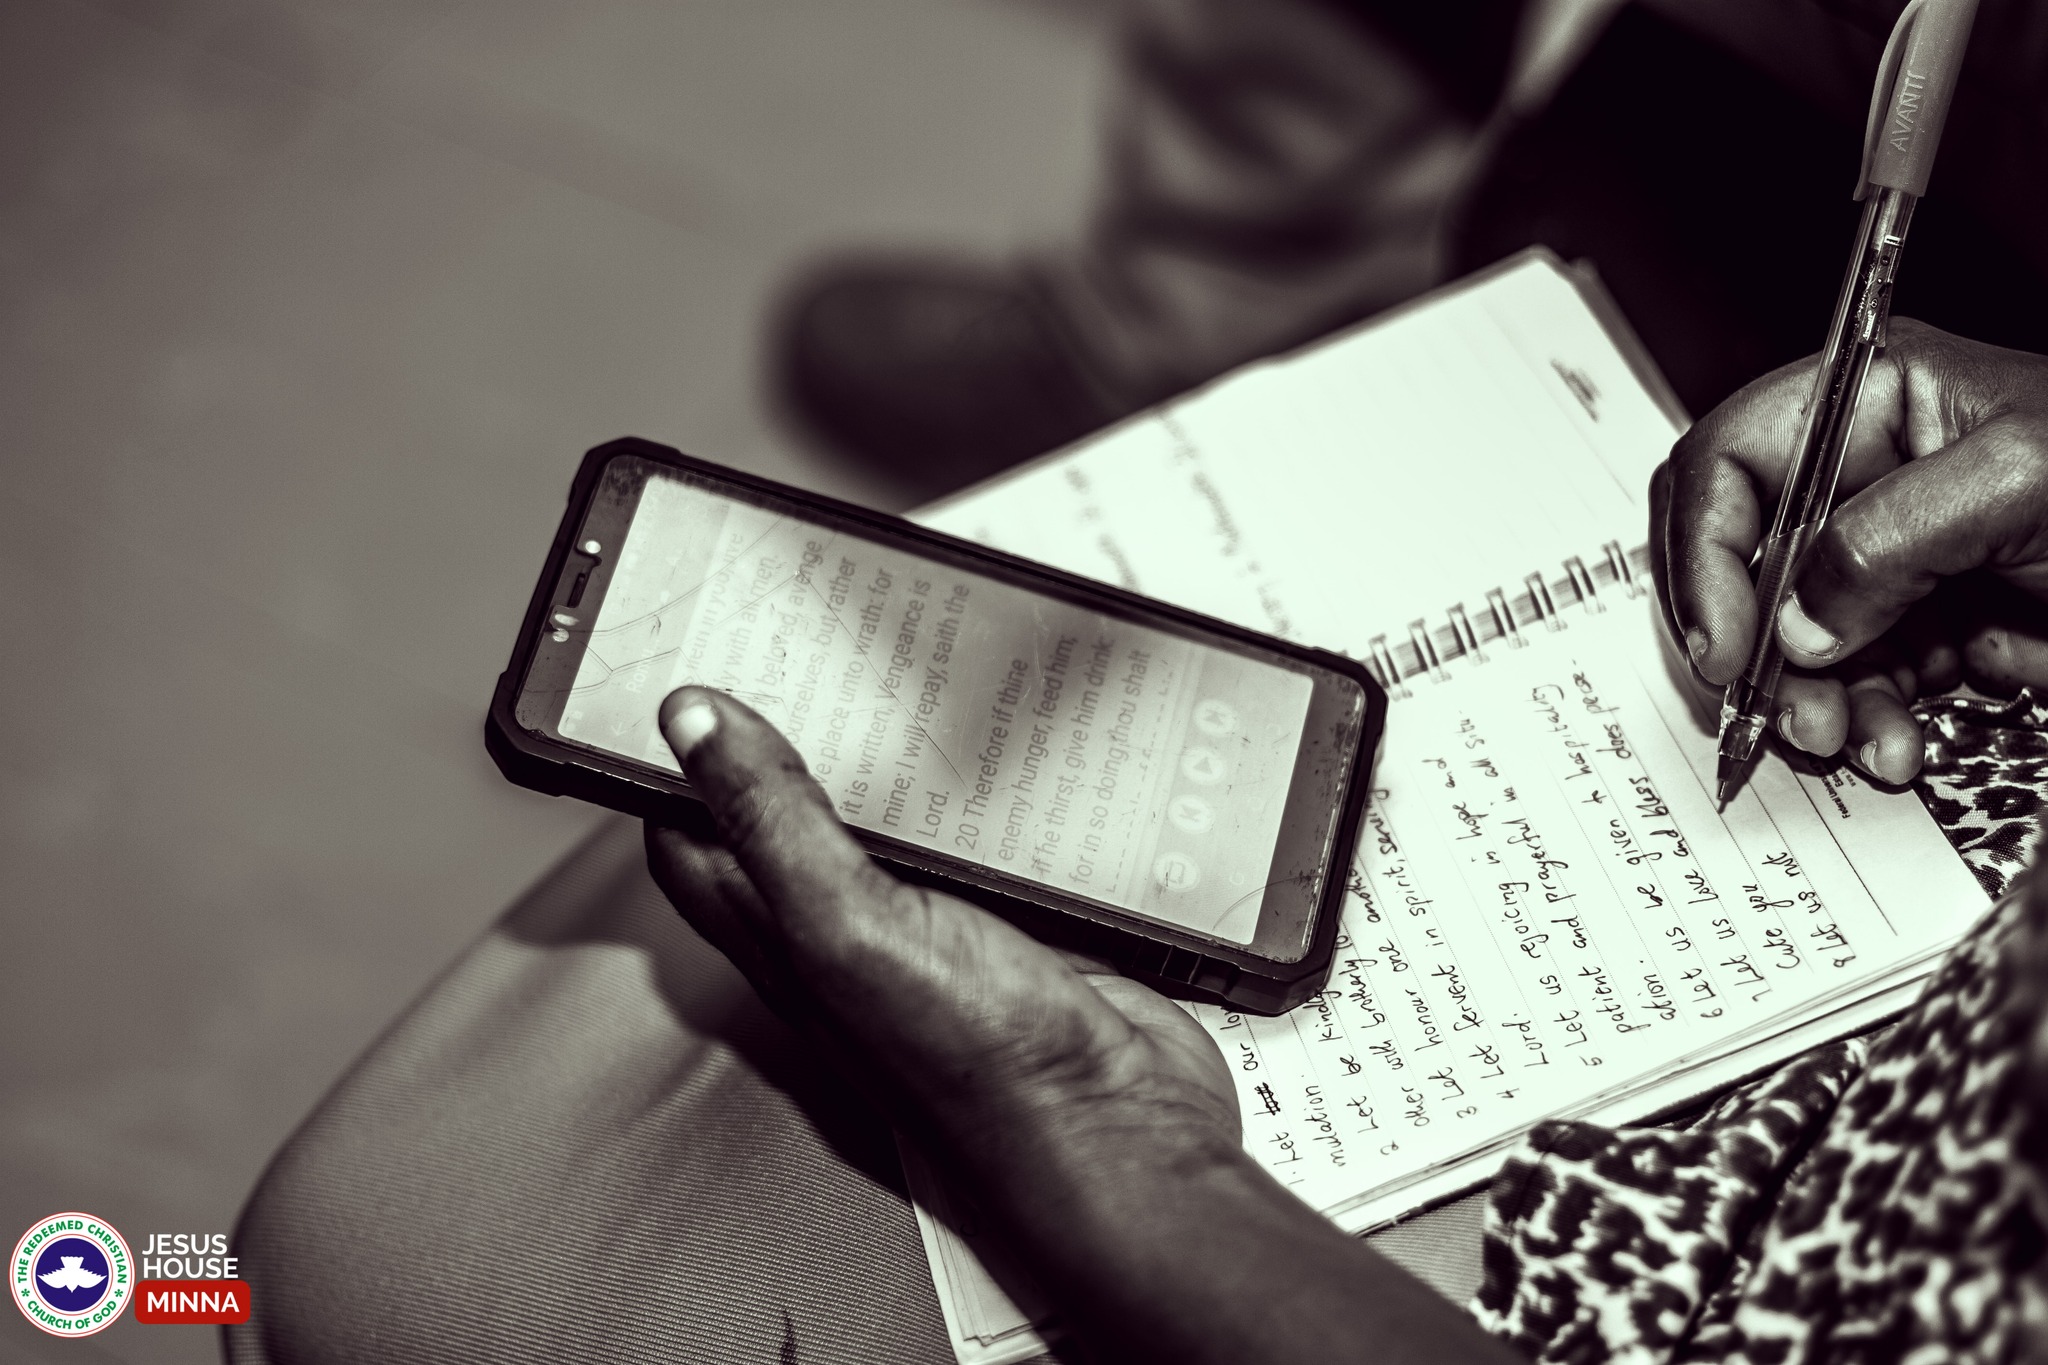 AVANTI
lieth in you, live
with all men.
beloved, avenge
ourselves, but rather
place unto wrath: for
it is written, Vengeance is
mine; I will repay, saith the
Lord.
20 Therefore if thine
enemy hunger, feed him;
if he thirst, give him drink:
for in so doing thou shalt
1. Let our
mulation.
2 Let be kindly
other with brotherly
3 Let honour one another
4 Let fervent in spirit, serving
Lord.
5 Let us rejoicing in hope and
patient and prayerful in all situ-
ation.
6 Let us be given to hospitality
7 Let us love and bless does perse-
cute you
8 Let us not
THE REDEEMED CHRISTIAN
CHURCH OF GOD
JESUS
HOUSE
MINNA